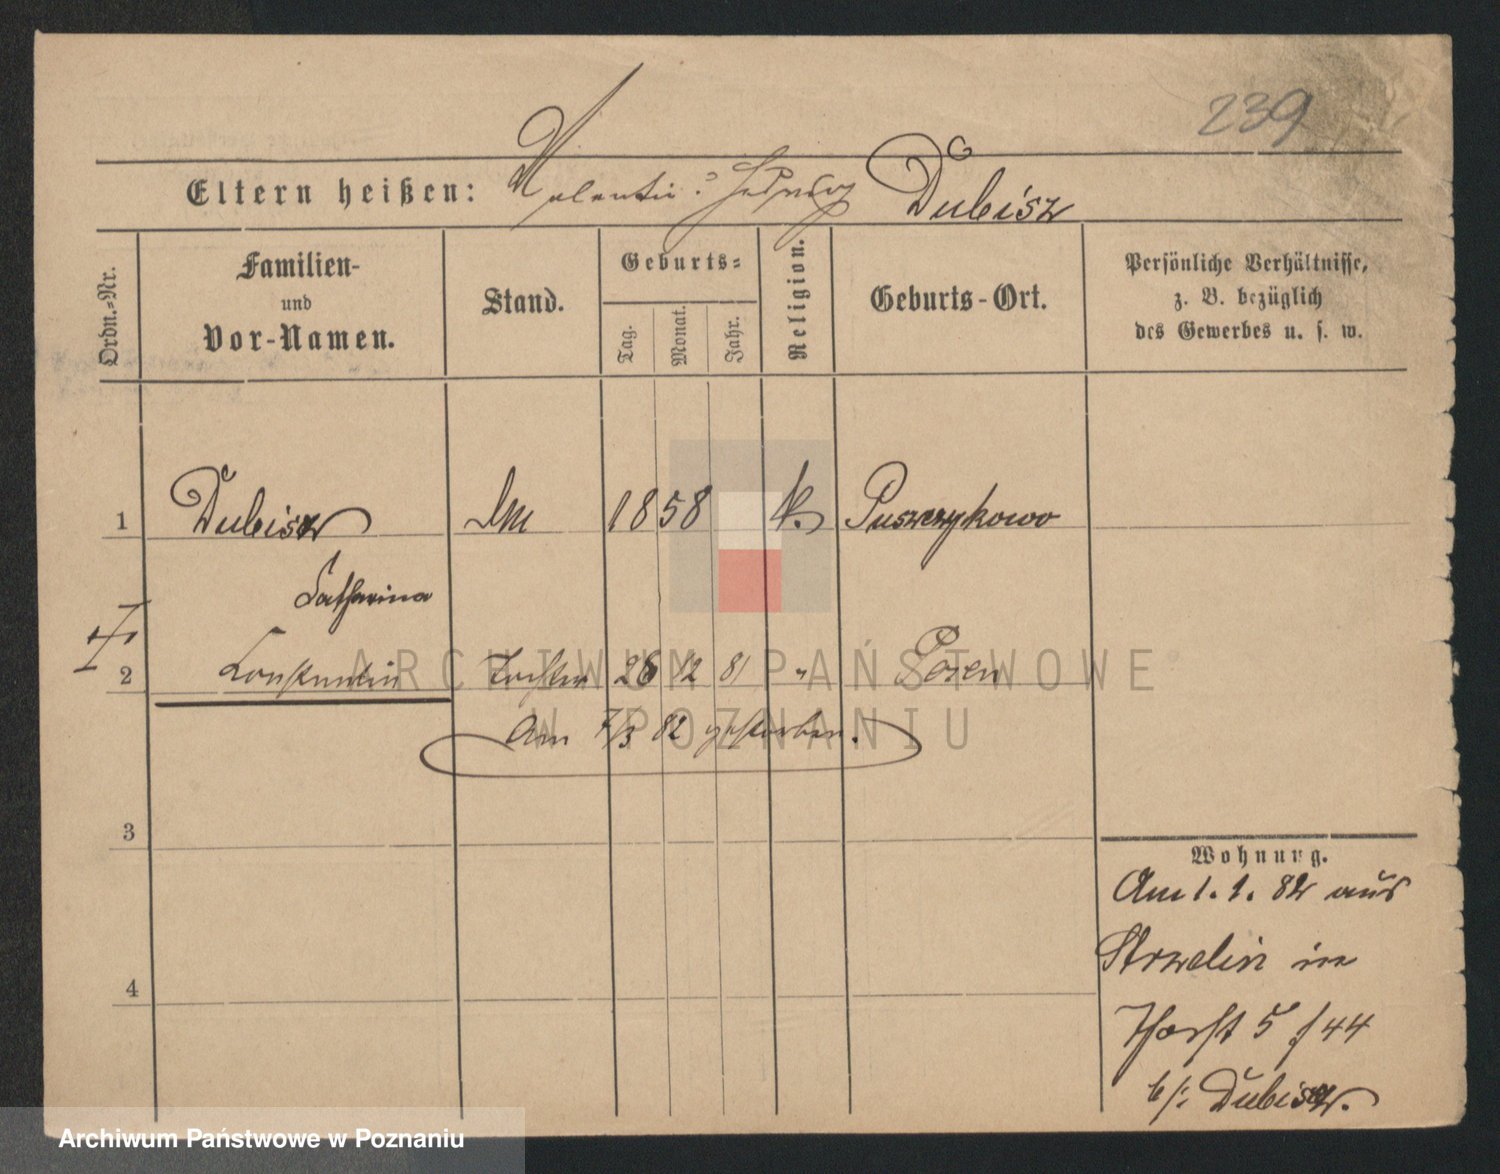 239
Eltern heißen: Valentin Hedwig Dubisz
Ordn.-Nr.
Familien-
und
Vor-Namen.
Stand.
Geburts-
Tag.
Monat.
Jahr.
Religion.
Geburts-Ort.
Persönliche Verhältnisse,
z. B. bezüglich
des Gewerbes u. s. w.
1 Dubisz 1858 k. Puszczykowo
Catharina
2 Tochter 26 12 81 " Posen
Am 7/3 82 gestorben.
3
4
Wohnung.
Am 1. 1. 82 aus
in
5 44
b/: Dubisz.
ARCHIWUM PAŃSTWOWE
W POZNANIU
Archiwum Państwowe w Poznaniu